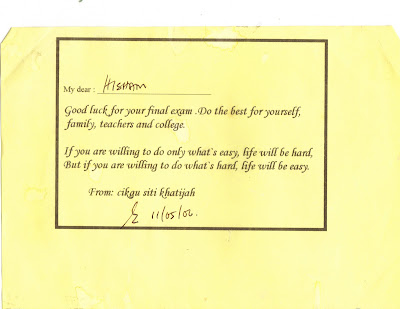 My dear : HISHAM
Good luck for your final exam .Do the best for yourself,
family, teachers and college.
If you are willing to do only what`s easy, life will be hard,
But if you are willing to do what`s hard, life will be easy.
From: cikgu siti khatijah
11/05/06.